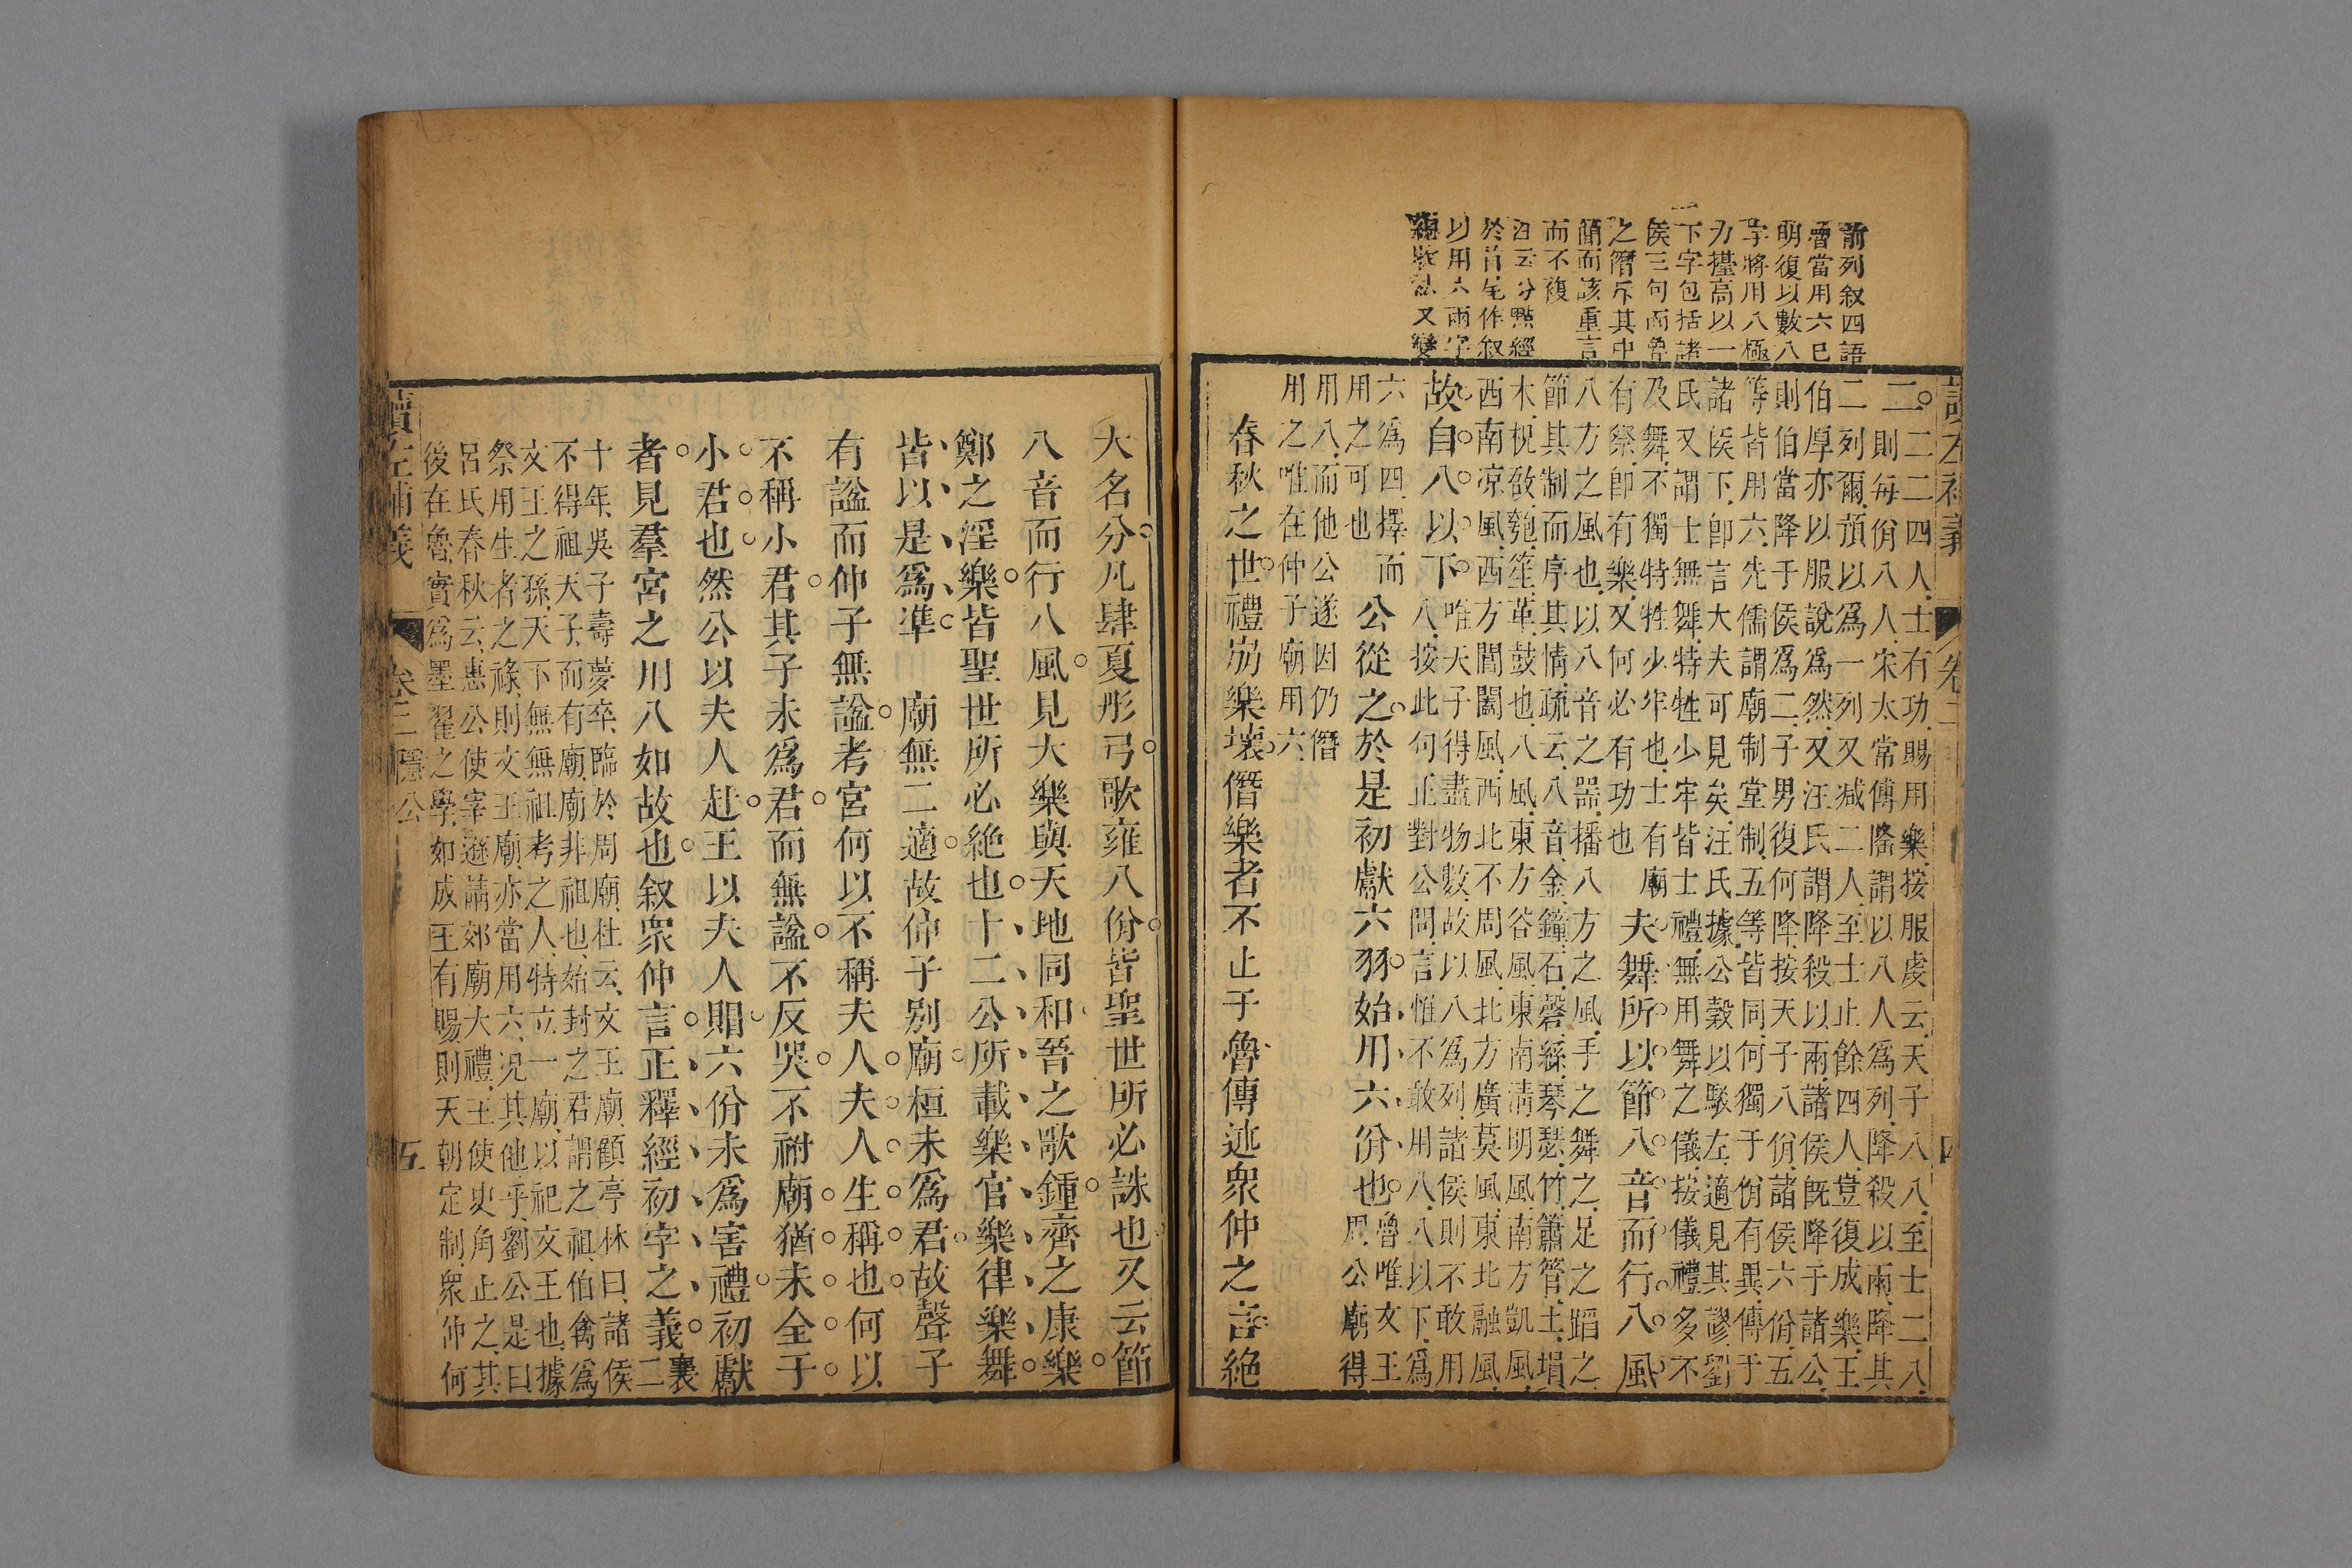 讀左補義
卷二
四
前列叙四語
魯當用六已
明復以數八
字將用八極
力擡高以一
下字包括諸
侯三句而魯
之僭斥其中
簡而該重言
而不複
汪云分點經
於首尾作叙
以用六兩字
又變
二。二二四人士有功賜用樂按服虔云天子八八至士二八
則每佾八人宋太常傅隆謂以八人為列降殺以兩降其
二列爾預以為一列又減二人至士止餘四人豈復成樂王
伯厚亦以服說為然又汪氏謂降殺以兩諸侯旣降于諸公
則伯當降于侯為二子男復何降按天子八佾諸侯六佾五
等皆用六先儒謂廟制堂制五等皆同何獨于佾有異傳于
諸侯下即言大夫可見矣汪氏據公穀以駁左適見其謬劉
氏又謂士無舞特牲少牢皆士禮無用舞之儀按儀禮多不
及舞不獨特牲少牢也士有廟
有祭即有樂又何必有功也
夫舞所以節八音而行八風
八方之風也以八音之器播八方之風手之舞之足之蹈之
節其制而序其情疏云八音金鐘石磬絲琴瑟竹簫管土塤
木柷敔匏笙革鼓也八風東方谷風東南清明風南方凱風
西南凉風西方閶闔風西北不周風北方廣莫風東北融風
故自八以下
唯天子得盡物數故以八為列諸侯則不敢用
八按此何止對公問言惟不敢用八八以下為
六為四擇而
用之可也
公從之於是初獻六羽始用六佾也
魯唯文王
周公廟得
用八而他公遂因仍僭
用之唯在仲子廟用六
春秋之世禮崩樂壞僭樂者不止于魯傳述衆仲之言絶
大名分凡肆夏彤弓歌雍八佾皆聖世所必誅也又云節
八音而行八風見大樂與天地同和晉之歌鍾齊之康樂
鄭之淫樂皆聖世所必絶也十二公所載樂官樂律樂舞
皆以是爲準　廟無二適故仲子別廟桓未爲君故聲子
有諡而仲子無諡考宮何以不稱夫人夫人生稱也何以
不稱小君其子未爲君而無諡不反哭不祔廟猶未全于
小君也然公以夫人赴王以夫人賵六佾未爲害禮初獻
者見羣宮之用八如故也叙衆仲言正釋經初字之義
襄
二
十年吳子壽夢卒臨於周廟杜云文王廟顧亭林曰諸侯
不得祖天子而有廟廟非祖也始封之君謂之祖伯禽為
文王之孫天下無無祖考之人特立一廟以祀文王也據
祭用生者之祿則文王廟亦當用六况其他乎劉公是曰
呂氏春秋云惠公使宰遜請郊廟大禮王使史角止之其
後在魯實為墨翟之學如成王有賜則天朝定制衆仲何
讀左補義
卷三
隱公
五